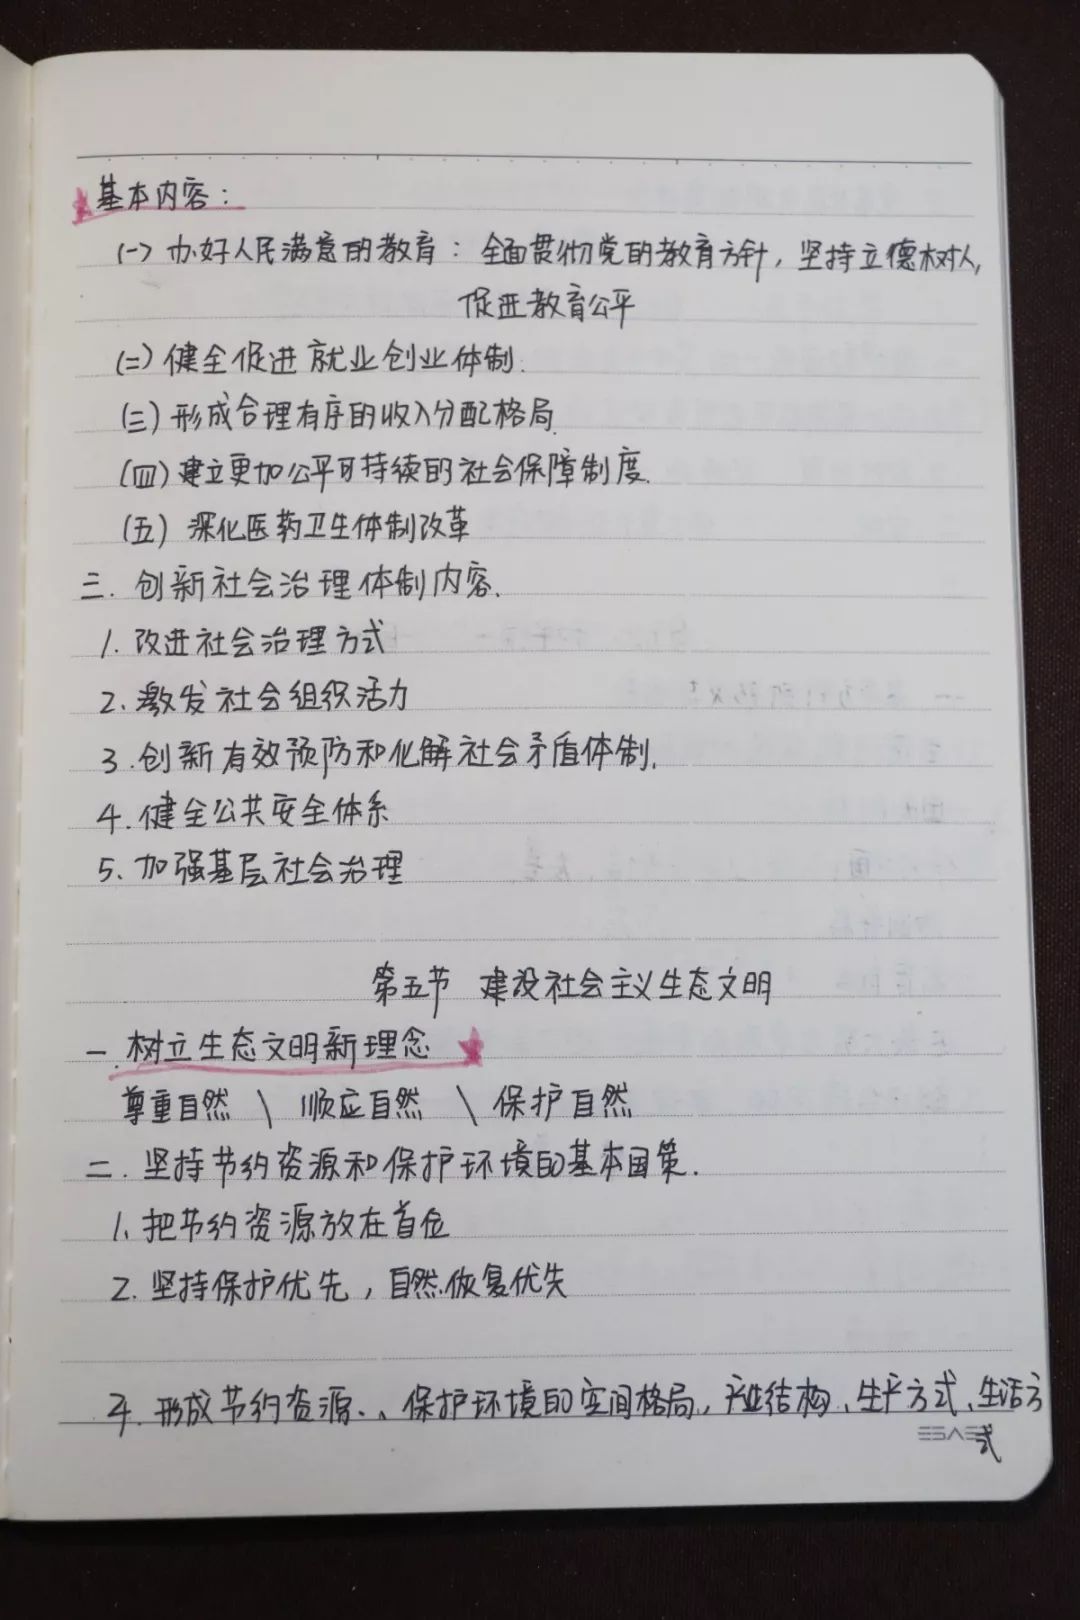 基本内容：
(一) 办好人民满意的教育：全面贯彻党的教育方针，坚持立德树人，
促进教育公平
(二) 健全促进就业创业体制.
(三) 形成合理有序的收入分配格局
(四) 建立更加公平可持续的社会保障制度.
(五) 深化医药卫生体制改革
三. 创新社会治理体制内容.
1. 改进社会治理方式
2. 激发社会组织活力
3. 创新有效预防和化解社会矛盾体制.
4. 健全公共安全体系
5. 加强基层社会治理
第五节 建设社会主义生态文明
一. 树立生态文明新理念
尊重自然 \ 顺应自然 \ 保护自然
二. 坚持节约资源和保护环境的基本国策.
1. 把节约资源放在首位
2. 坚持保护优先，自然恢复优先
4. 形成节约资源、、保护环境的空间格局，产业结构、生产方式、生活方
式